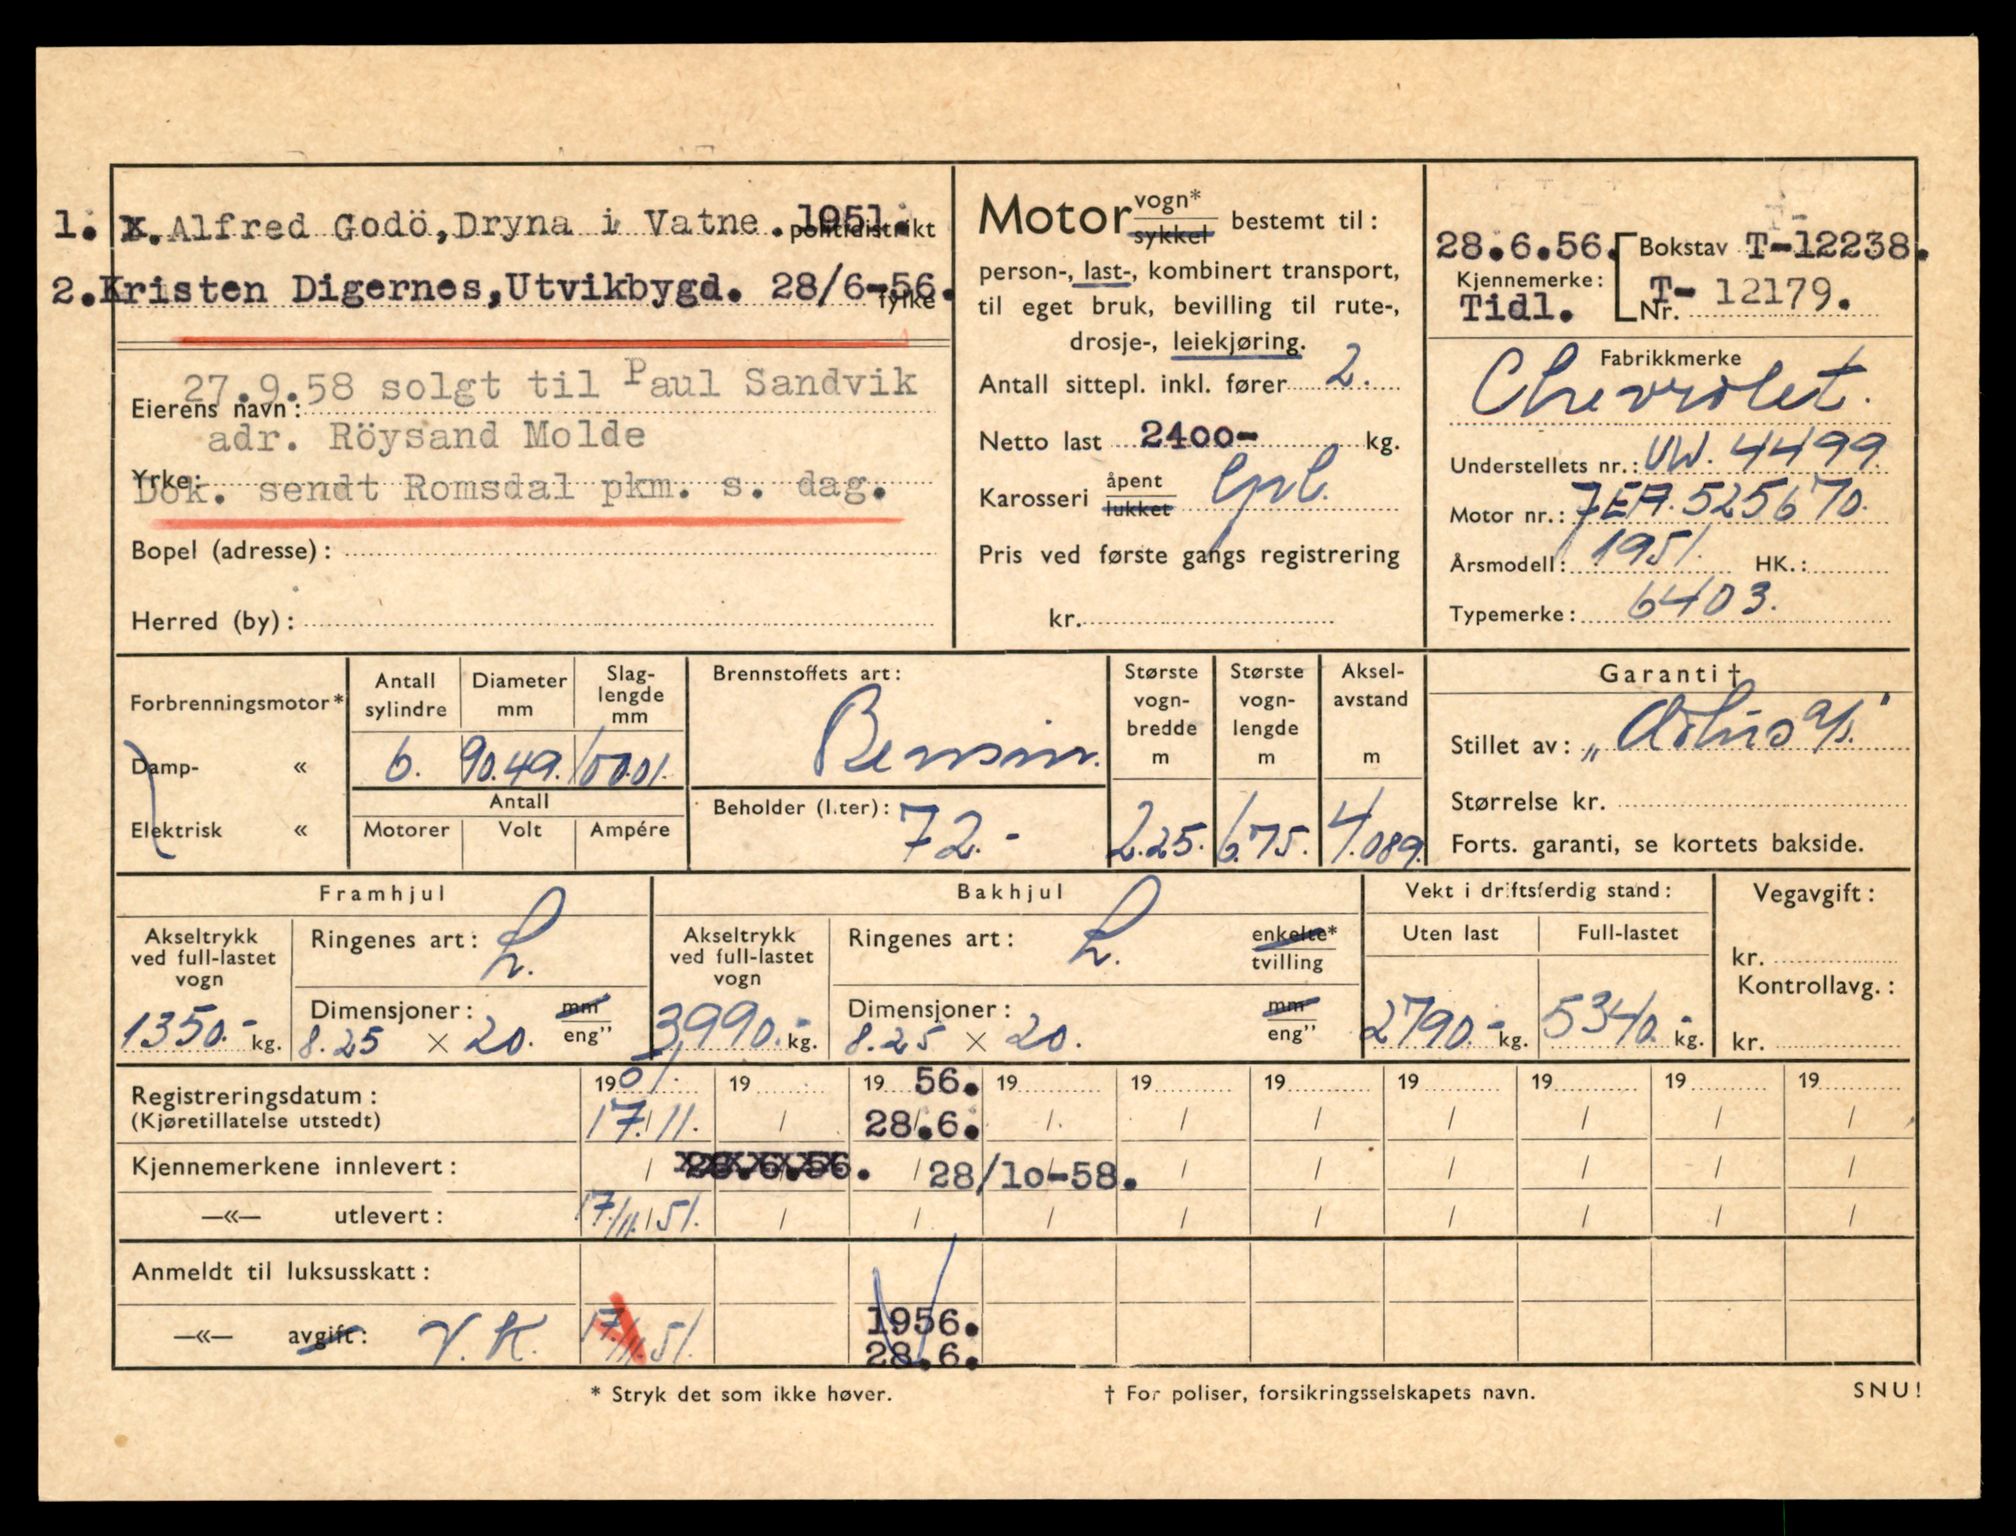 1. x. Alfred Godö, Dryna i Vatne. 1951. politidistrikt
2. Kristen Digernes, Utvikbygd. 28/6-56. fylke
27.9.58 solgt til Paul Sandvik
Eierens navn:
adr. Röysand Molde
Yrke:
Dok. sendt Romsdal pkm. s. dag.
Bopel (adresse):
Herred (by):
Motor vogn* sykkel bestemt til:
person-, last-, kombinert transport,
til eget bruk, bevilling til rute-,
drosje-, leiekjøring.
Antall sittepl. inkl. fører 2.
Netto last 2400- kg.
Karosseri åpent lukket
Pris ved første gangs registrering
kr.
28.6.56. Bokstav T-12238.
Kjennemerke:
Tidl. Nr. T- 12179.
Fabrikkmerke
Chevrolet.
Understellets nr.: UW. 4499.
Motor nr.: 7EA. 525670.
Årsmodell: 1951. HK.:
Typemerke: 6403.
Forbrenningsmotor*
Damp- «
Elektrisk «
Antall sylindre 6.
Diameter mm 90.49.
Slag-lengde mm 100.01.
Antall
Motorer Volt Ampére
Brennstoffets art:
Bensin.
Beholder (l.ter): 72.-
Største vogn-bredde m 2.25.
Største vogn-lengde m 6.75.
Aksel-avstand m 4.089.
Garanti †
Stillet av: „ Æolus a/s."
Størrelse kr.
Forts. garanti, se kortets bakside.
Framhjul
Akseltrykk ved full-lastet vogn 1350.- kg.
Ringenes art: L.
Dimensjoner: mm eng”
8.25 × 20.
Bakhjul
Akseltrykk ved full-lastet vogn 3990.- kg.
Ringenes art: L. enkelte* tvilling
Dimensjoner: mm eng”
8.25 × 20.
Vekt i driftsferdig stand:
Uten last 2790.- kg.
Full-lastet 5340.- kg.
Vegavgift:
kr.
Kontrollavg.:
kr.
Registreringsdatum: 1951. 19 19 56. 19 19 19 19 19 19 19
(Kjøretillatelse utstedt) 17/11. / 28.6. / / / / / / /
Kjennemerkene innlevert: / 28.6.56. / 28/10-58. / / / / / /
—«— utlevert: 17./11.51. / / / / / / / / /
Anmeldt til luksusskatt:
—«— avgift: V.K. 17./11.51. 1956.
28.6.
* Stryk det som ikke høver.
† For poliser, forsikringsselskapets navn.
SNU!